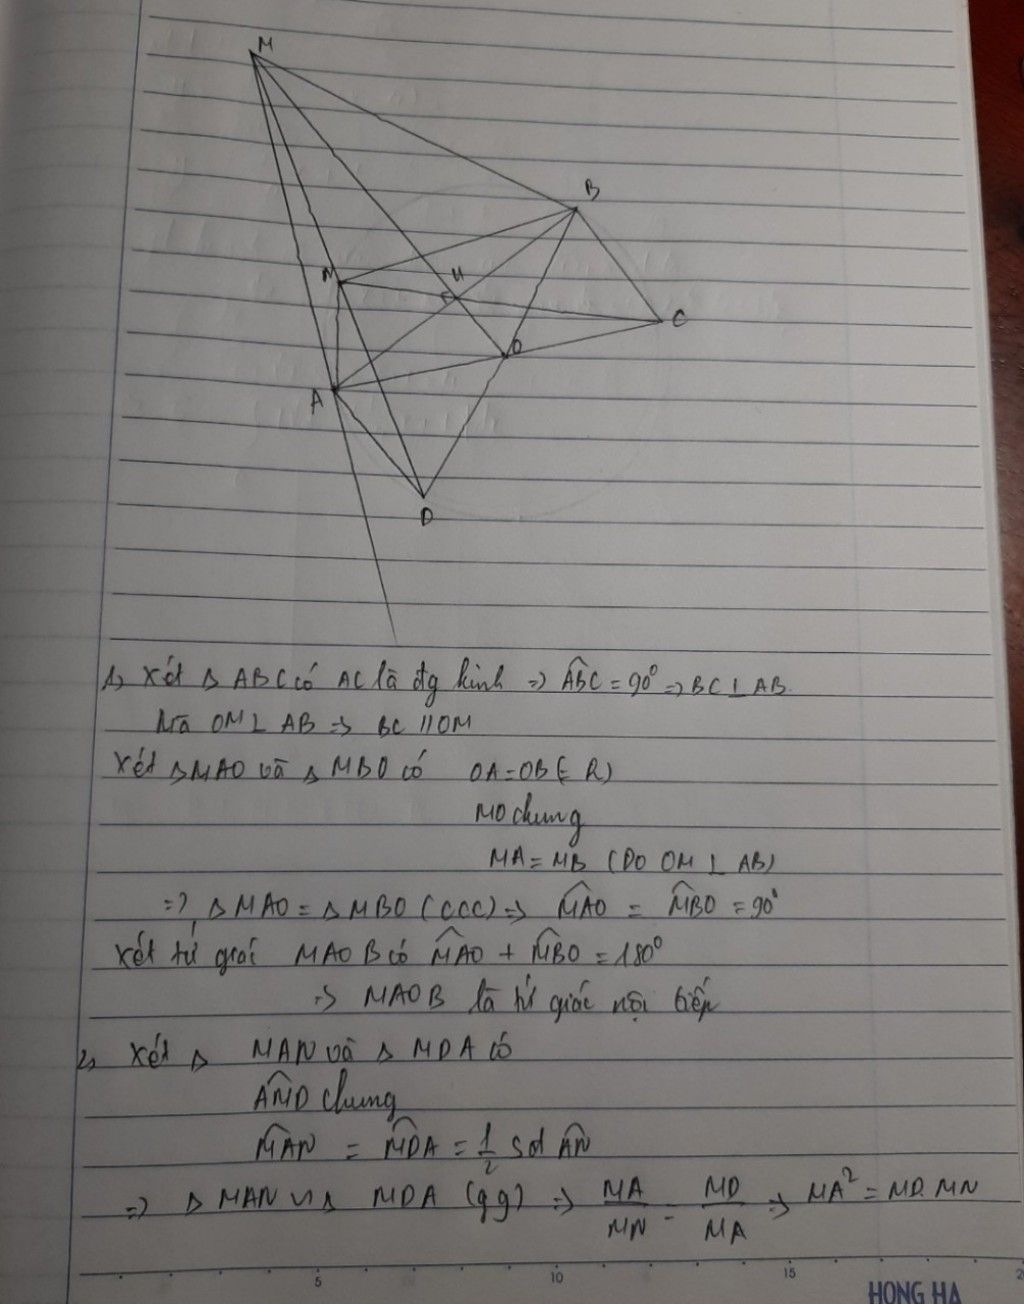 M
B
N
H
C
O
A
D
1, Xét Δ ABC có AC là đg kính => ABC = 90° => BC ⊥ AB
Mà OM ⊥ AB => BC // OM
Xét Δ MAO và Δ MBO có OA = OB (= R)
MO chung
MA = MB (Do OM ⊥ AB)
=> Δ MAO = Δ MBO (CCC) => MAO = MBO = 90°
Xét tứ giác MAOB có MAO + MBO = 180°
=> MAOB là tứ giác nội tiếp
2, Xét Δ MAN và Δ MDA có
AMD chung
MAN = MDA = 1/2 sđ AN
=> Δ MAN ∽ Δ MDA (gg) => MA/MN = MD/MA => MA² = MD.MN
5 10 15
HONG HA